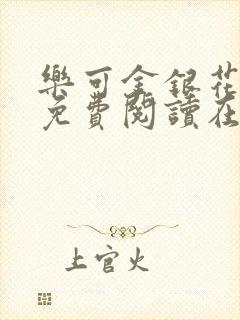 樂可金銀花
免費閱讀在
上官火